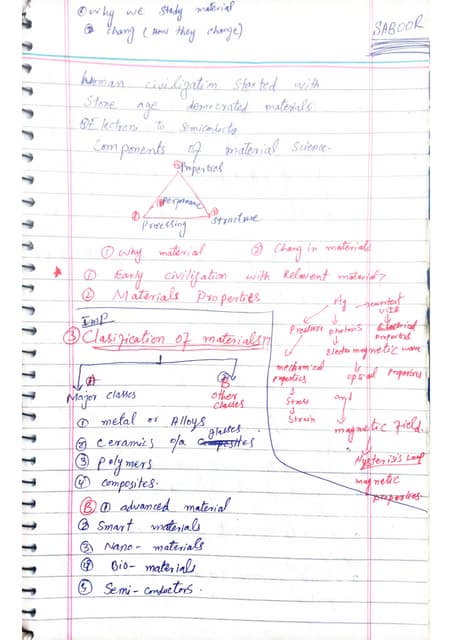 ① why we study material
② chang (how they change)
SABOOR
Human civilization started with
Stone age democrated materials.
③ Electrons to semiconductor
Components of material Science.
① Properties
Performance
② Processing
③ Structure
① why material
② Chang in materials
① Early civilization with Relavent material?
② Materials Properties
Imp
③ Clasification of materials?
A
Major classes
B
other classes
① metal or Alloys
② Ceramics o/a glasses
③ Polymers
④ composites.
Ⓑ ① advanced material
② Smart materials
③ Nano-materials
④ Bio-materials
⑤ Semi-conductors.
Ag
Pressure
photons
Electrical
Properties
mechanical
Properties
Electro magnetic wave
optical Properties
Stress
Strain
and
magnetic Field.
Hysterisis Loop
magnetic
properties.